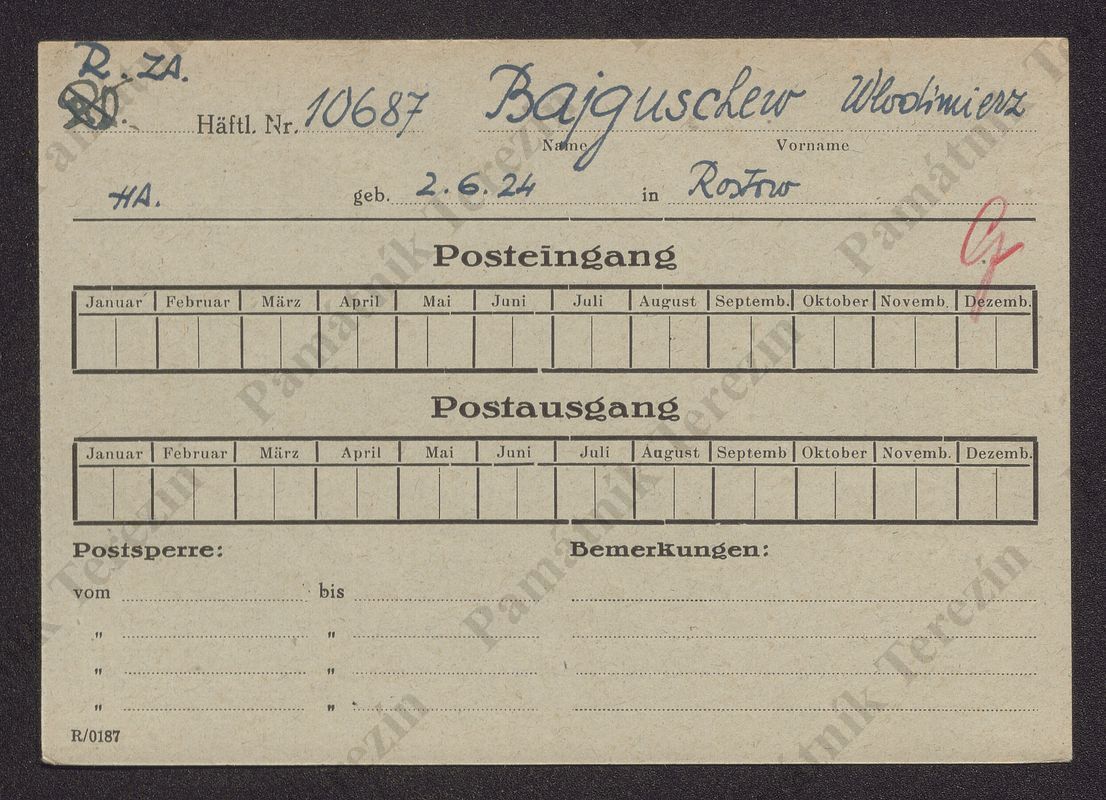 R. ZA.
Häftl. Nr. 10687 Bajguschew Wlodimierz
Name Vorname
HA. geb. 2.6.24 in Rostow
Posteingang
Januar Februar März April Mai Juni Juli August Septemb. Oktober Novemb. Dezemb.
Postausgang
Januar Februar März April Mai Juni Juli August Septemb Oktober Novemb. Dezemb.
Postsperre: Bemerkungen:
vom bis
" "
" "
" "
R/0187
Památník Terezín